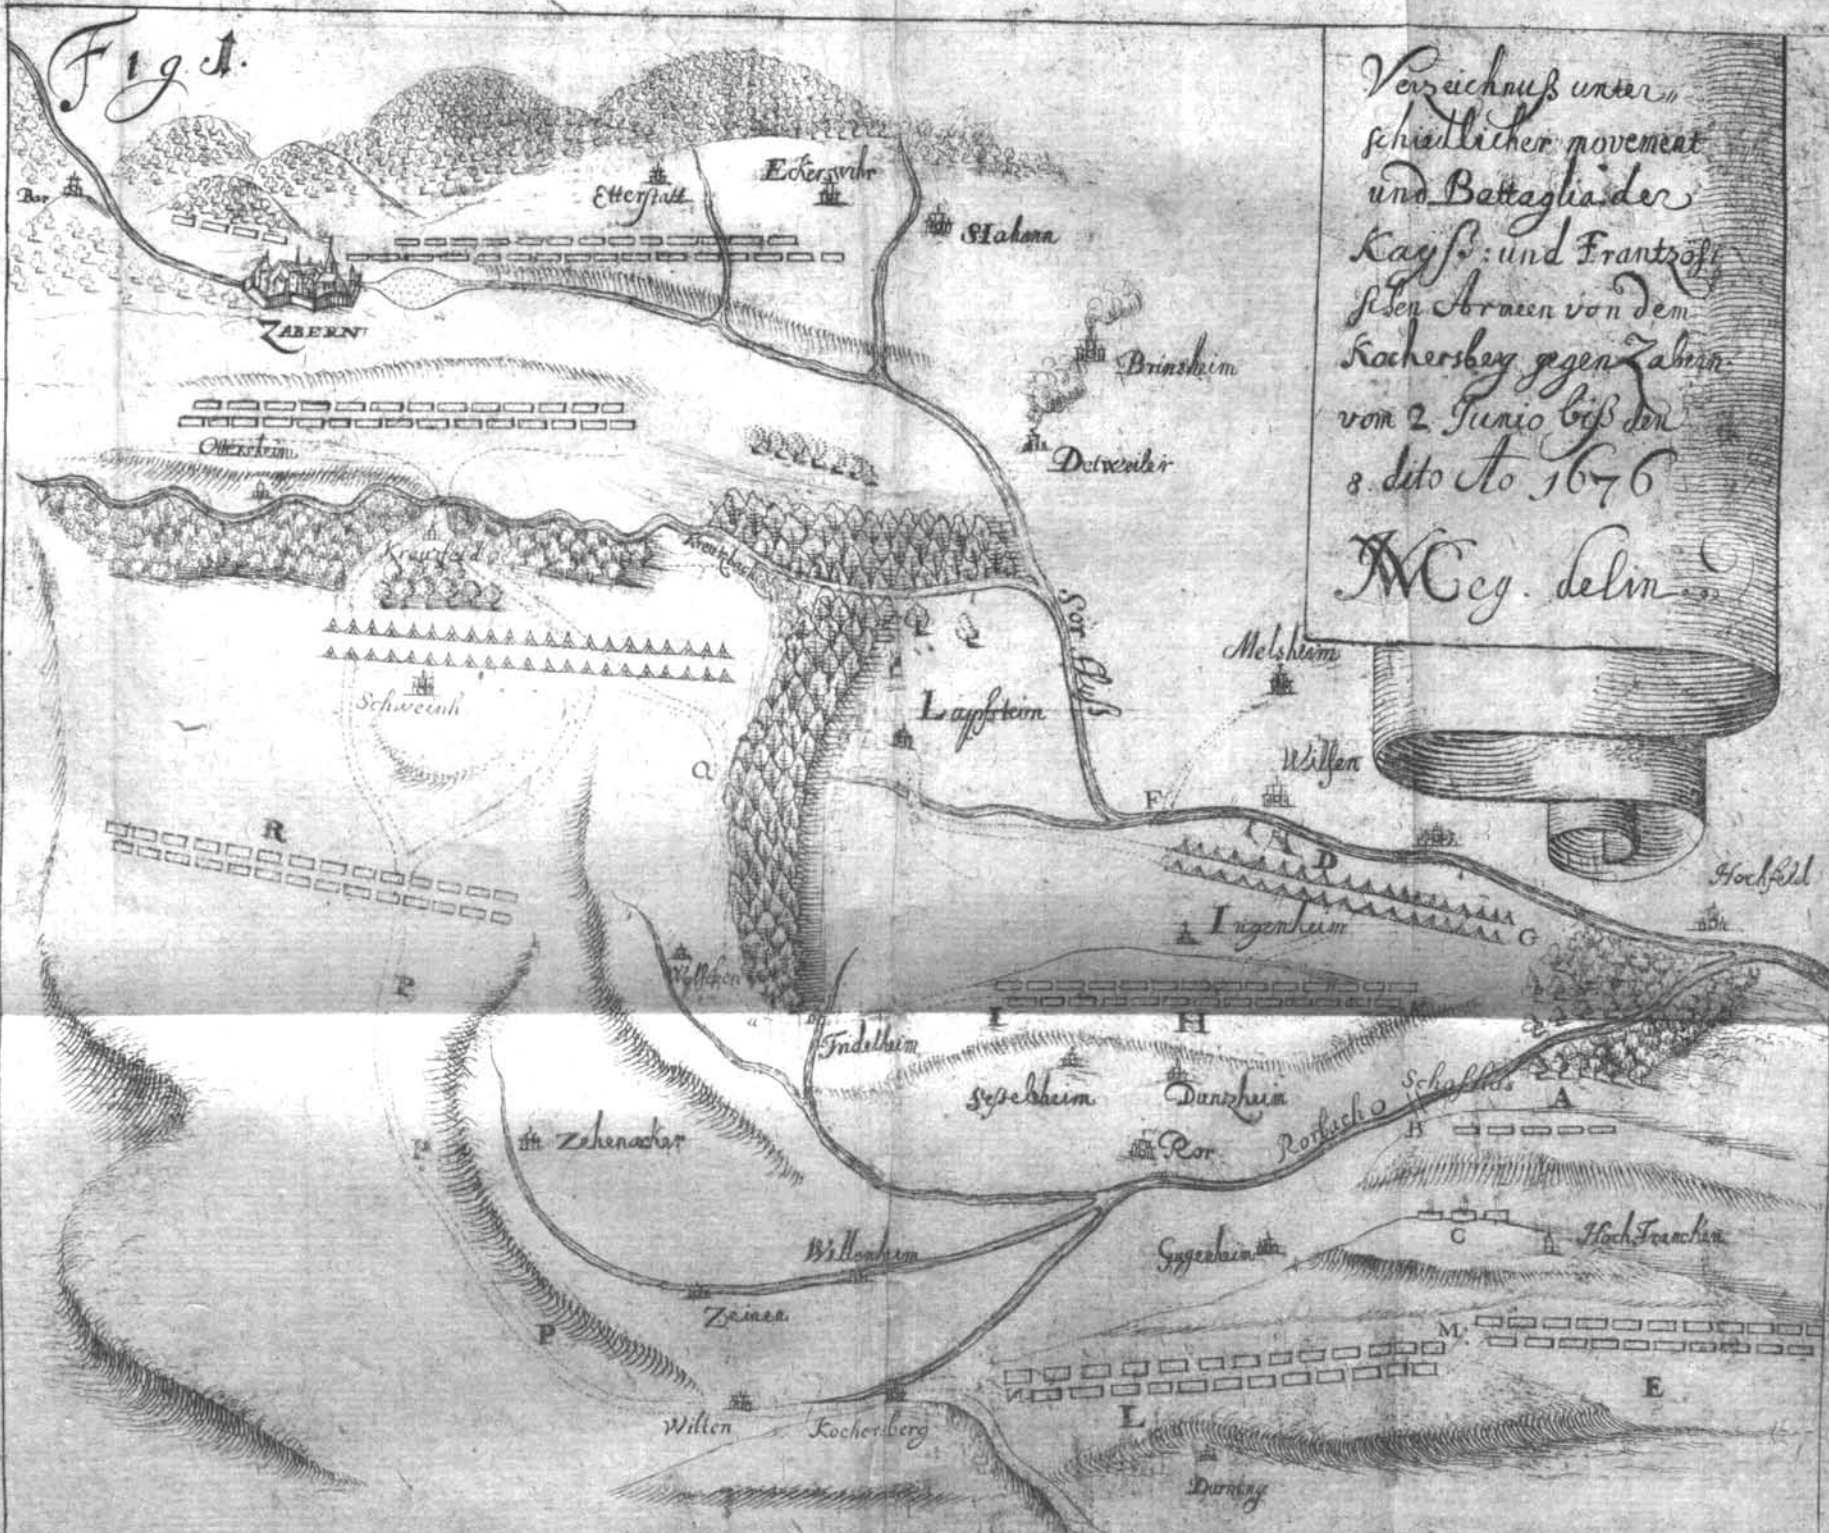 Fig. 1.
Verzeichnuß unter„
schiedlicher movement
und Battaglia der
Kayß: und Frantzösi
schen Armeen von dem
Kochersberg gegen Zabern
vom 2 Junio biß den
8. dito Ao 1676
delin
Bar
Etterstatt
Eckerswihr
ZABERN
Brinsheim
Detweiler
Ottersheim
Kreutzfeld
Kreutzbach
Sor Fluß
Schweinh
Lapfstein
Melsheim
Wilsen
Q
F
D
R
Hochfeld
Ingenheim
G
P
I
H
Fridelheim
Seßelsheim
Danzheim
Schafhus
A
B
Rorbach
Ror
Zehenacker
P
Willenheim
Gygenheim
C
Hoch Francken
Zeinen
P
M
N
L
E
Wilten
Kochersberg